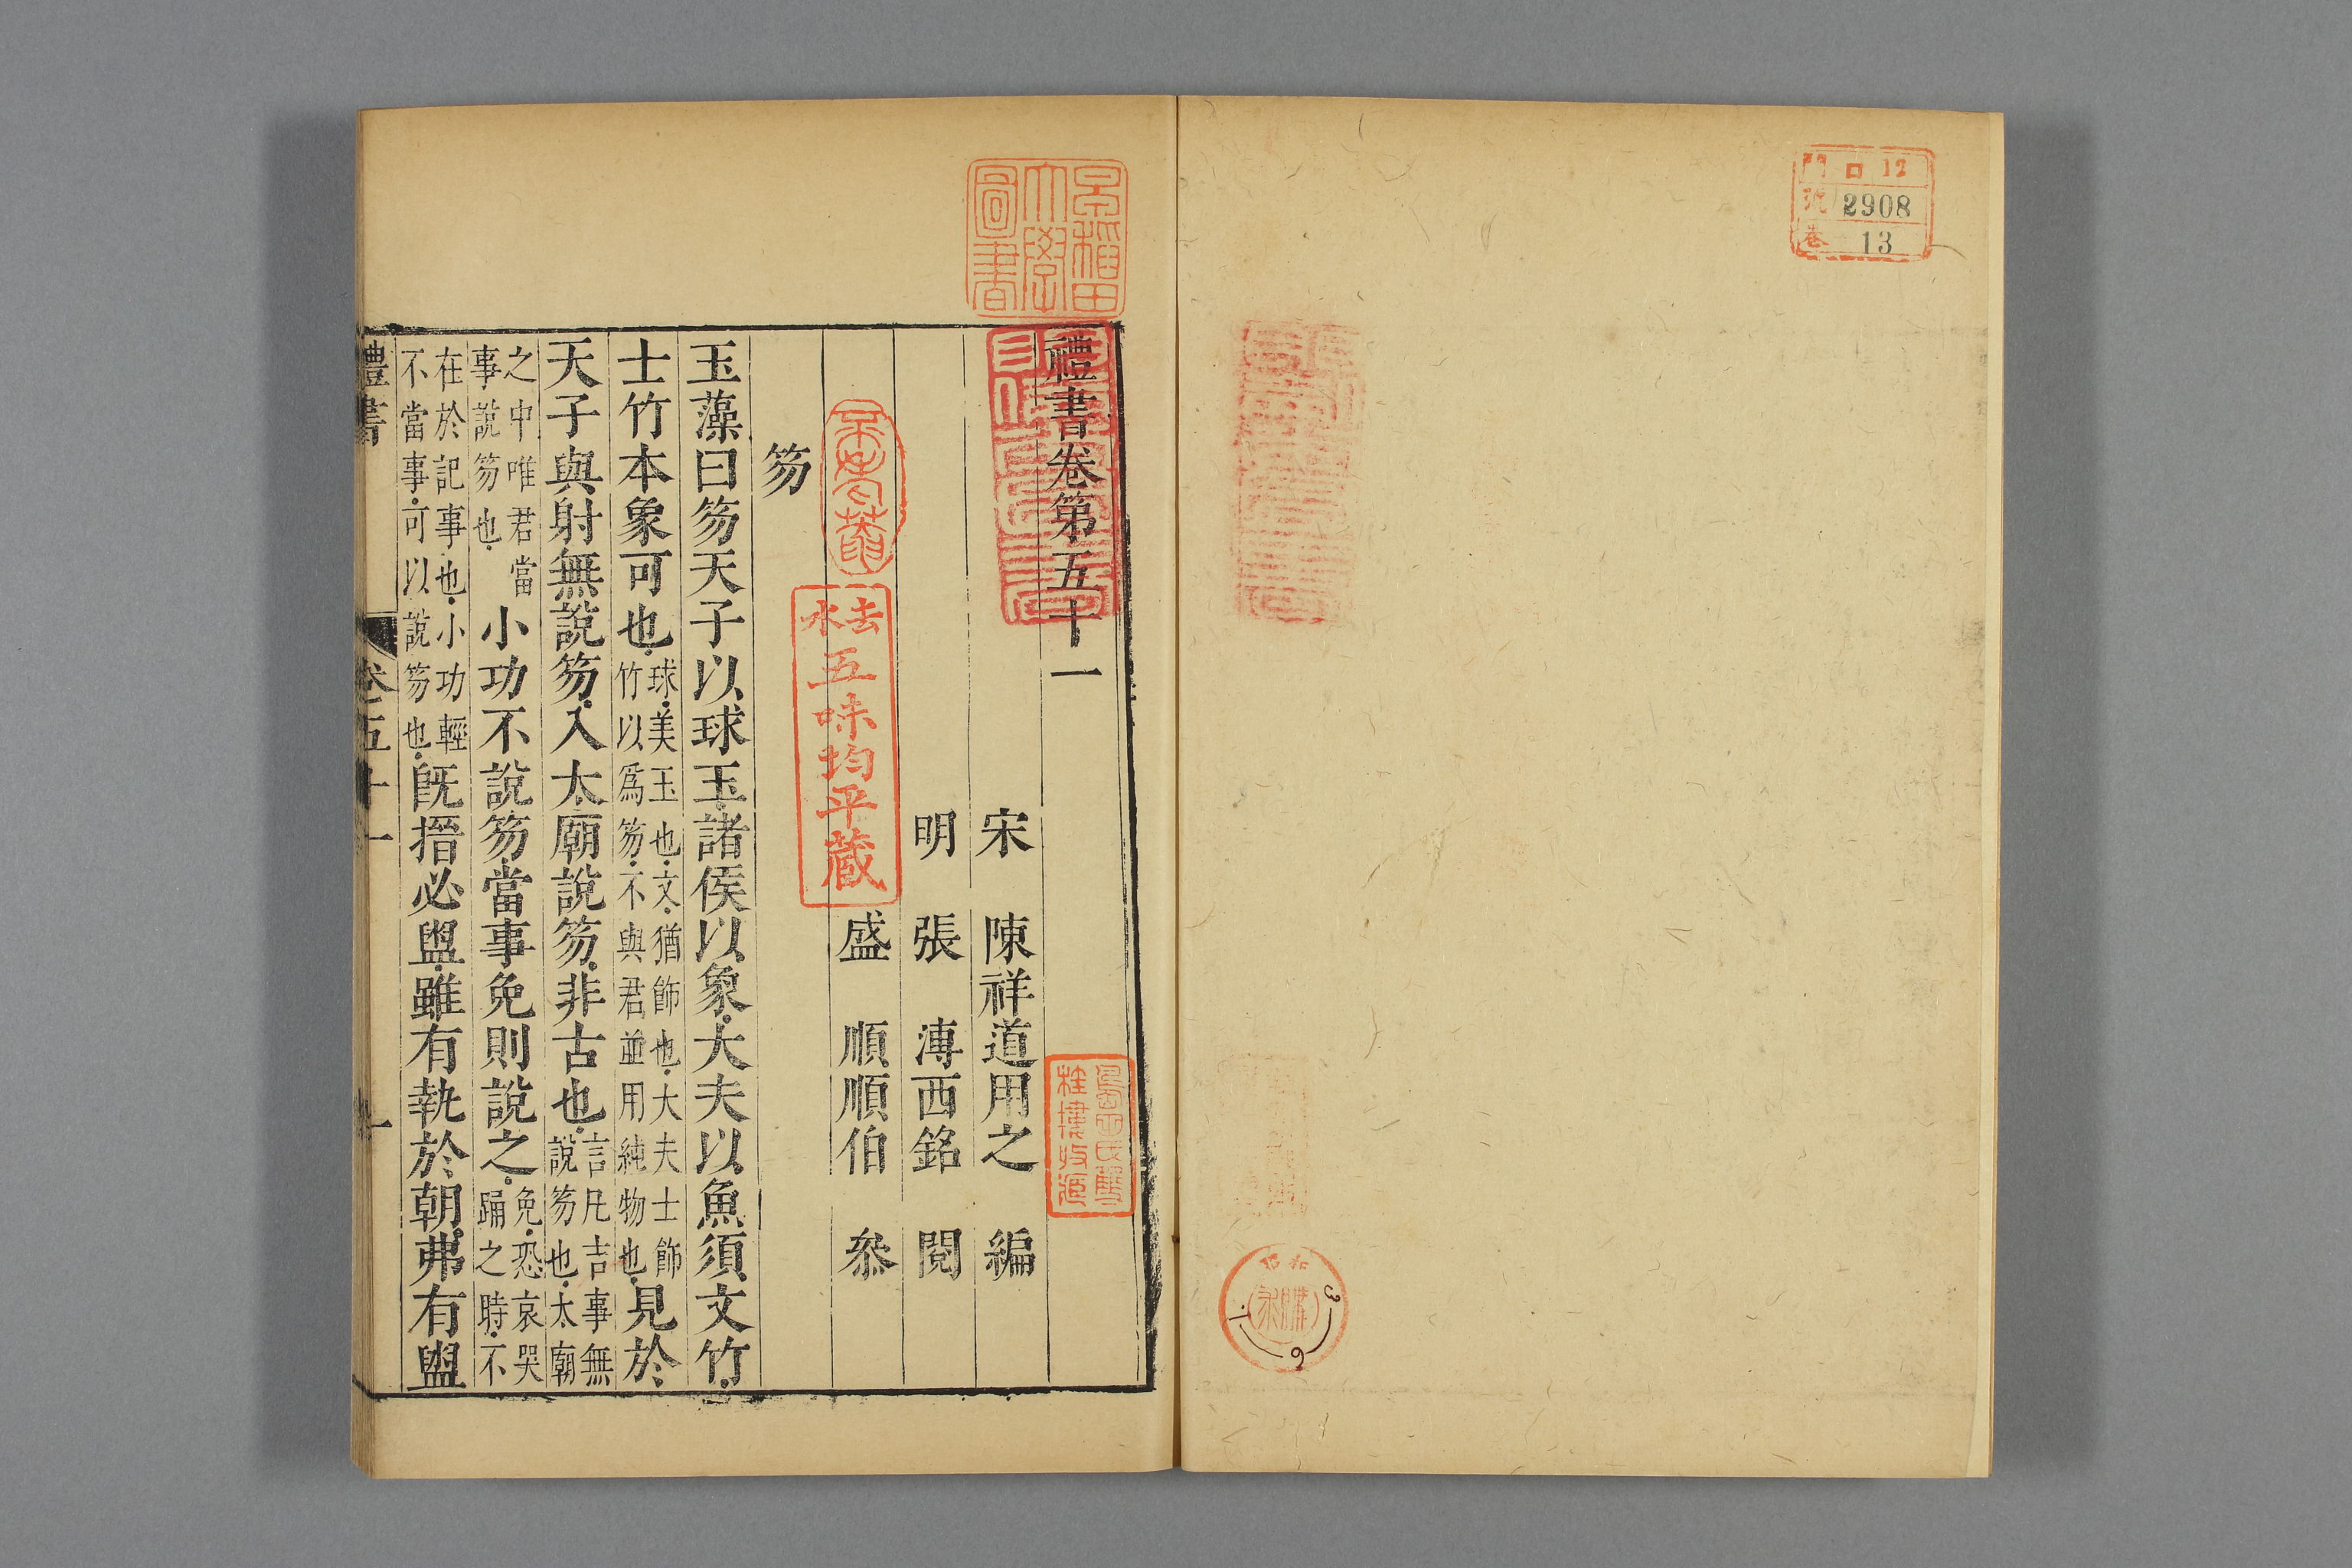 門 ロ 12
號 2908
巻 13
早稲田大學圖書
禮書卷第五十一
宋 陳祥道用之 編
明 張 溥西銘 閱
盛 順順伯 叅
去水五味均平蔵
笏
玉藻曰笏天子以球玉諸侯以象大夫以魚須文竹
士竹本象可也球美玉也文猶飾也大夫士飾竹以爲笏不與君並用純物也見於
天子與射無說笏入太廟說笏非古也言凡吉事無說笏也太廟
之中唯君當事說笏也小功不說笏當事免則說之免恐哀哭踊之時不
在於記事也小功輕不當事可以說笏也旣搢必盥雖有執於朝弗有盥
禮書 卷五十一 一